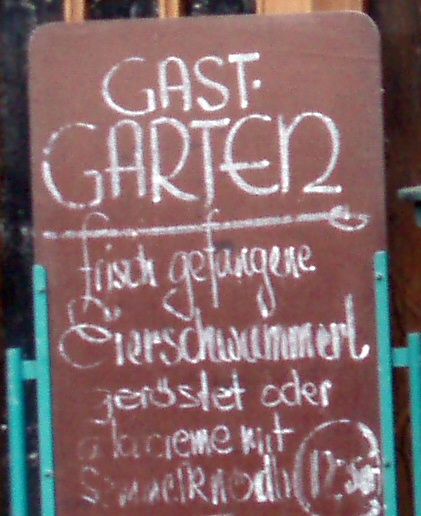 GAST-
GARTEN
frisch gefangene
Eierschwammerl
geröstet oder
a la creme mit
Semmelknödl 12,50